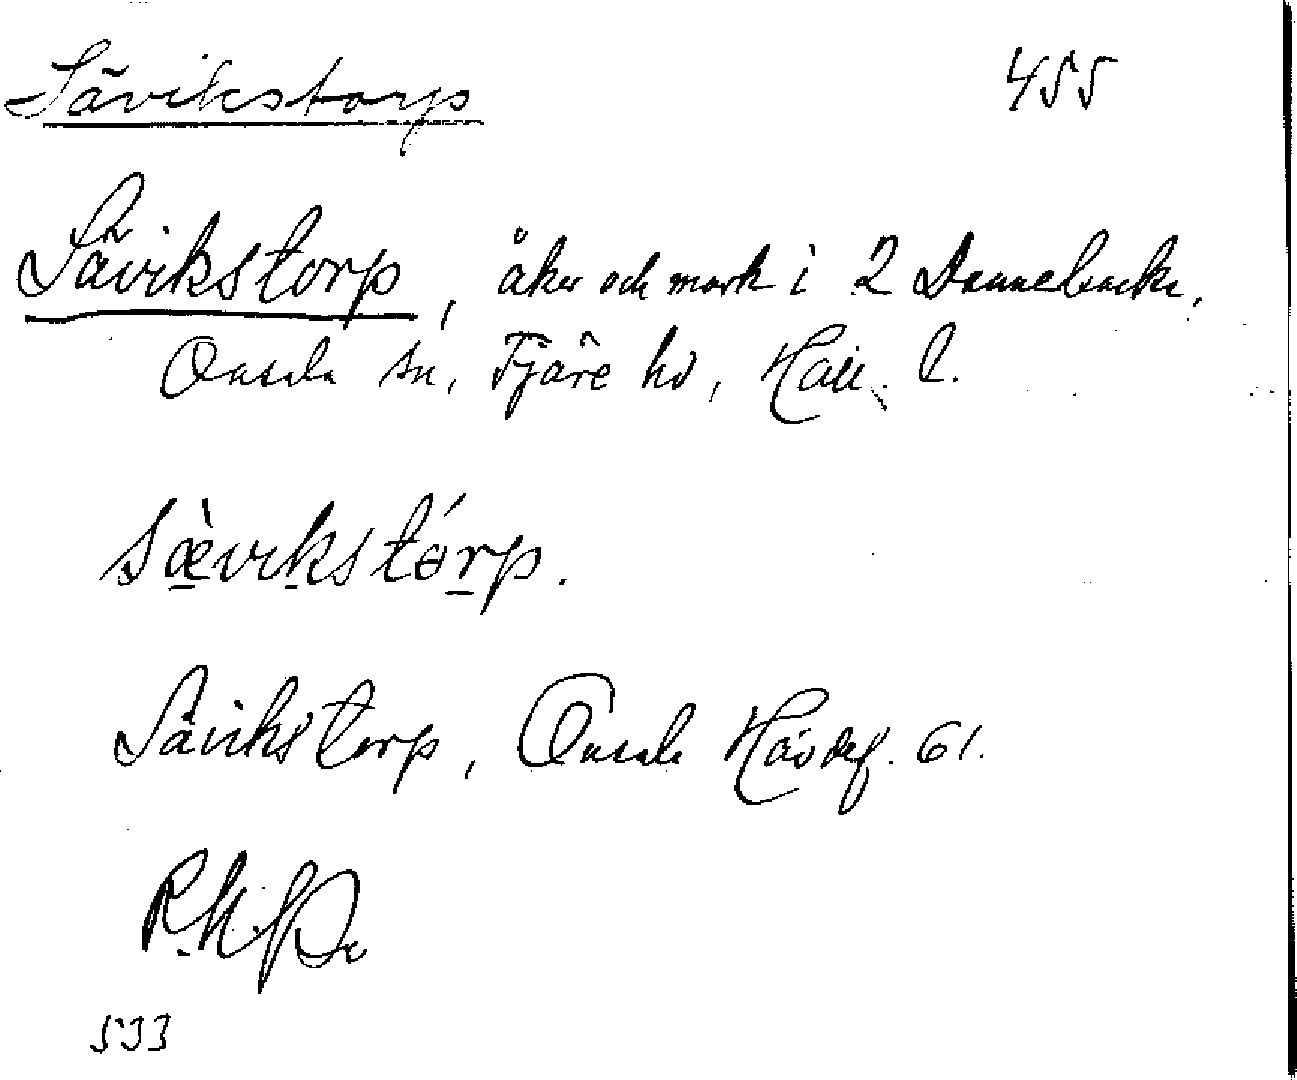 Sävikstorp 455
Sävikstorp, åker och mark i 2 Dannebacka,
Onsala sn, Fjäre hd, Hall. l.
sæ̀vikstórp.
Sävikstorp, Onsala Hävdef. 61.
533